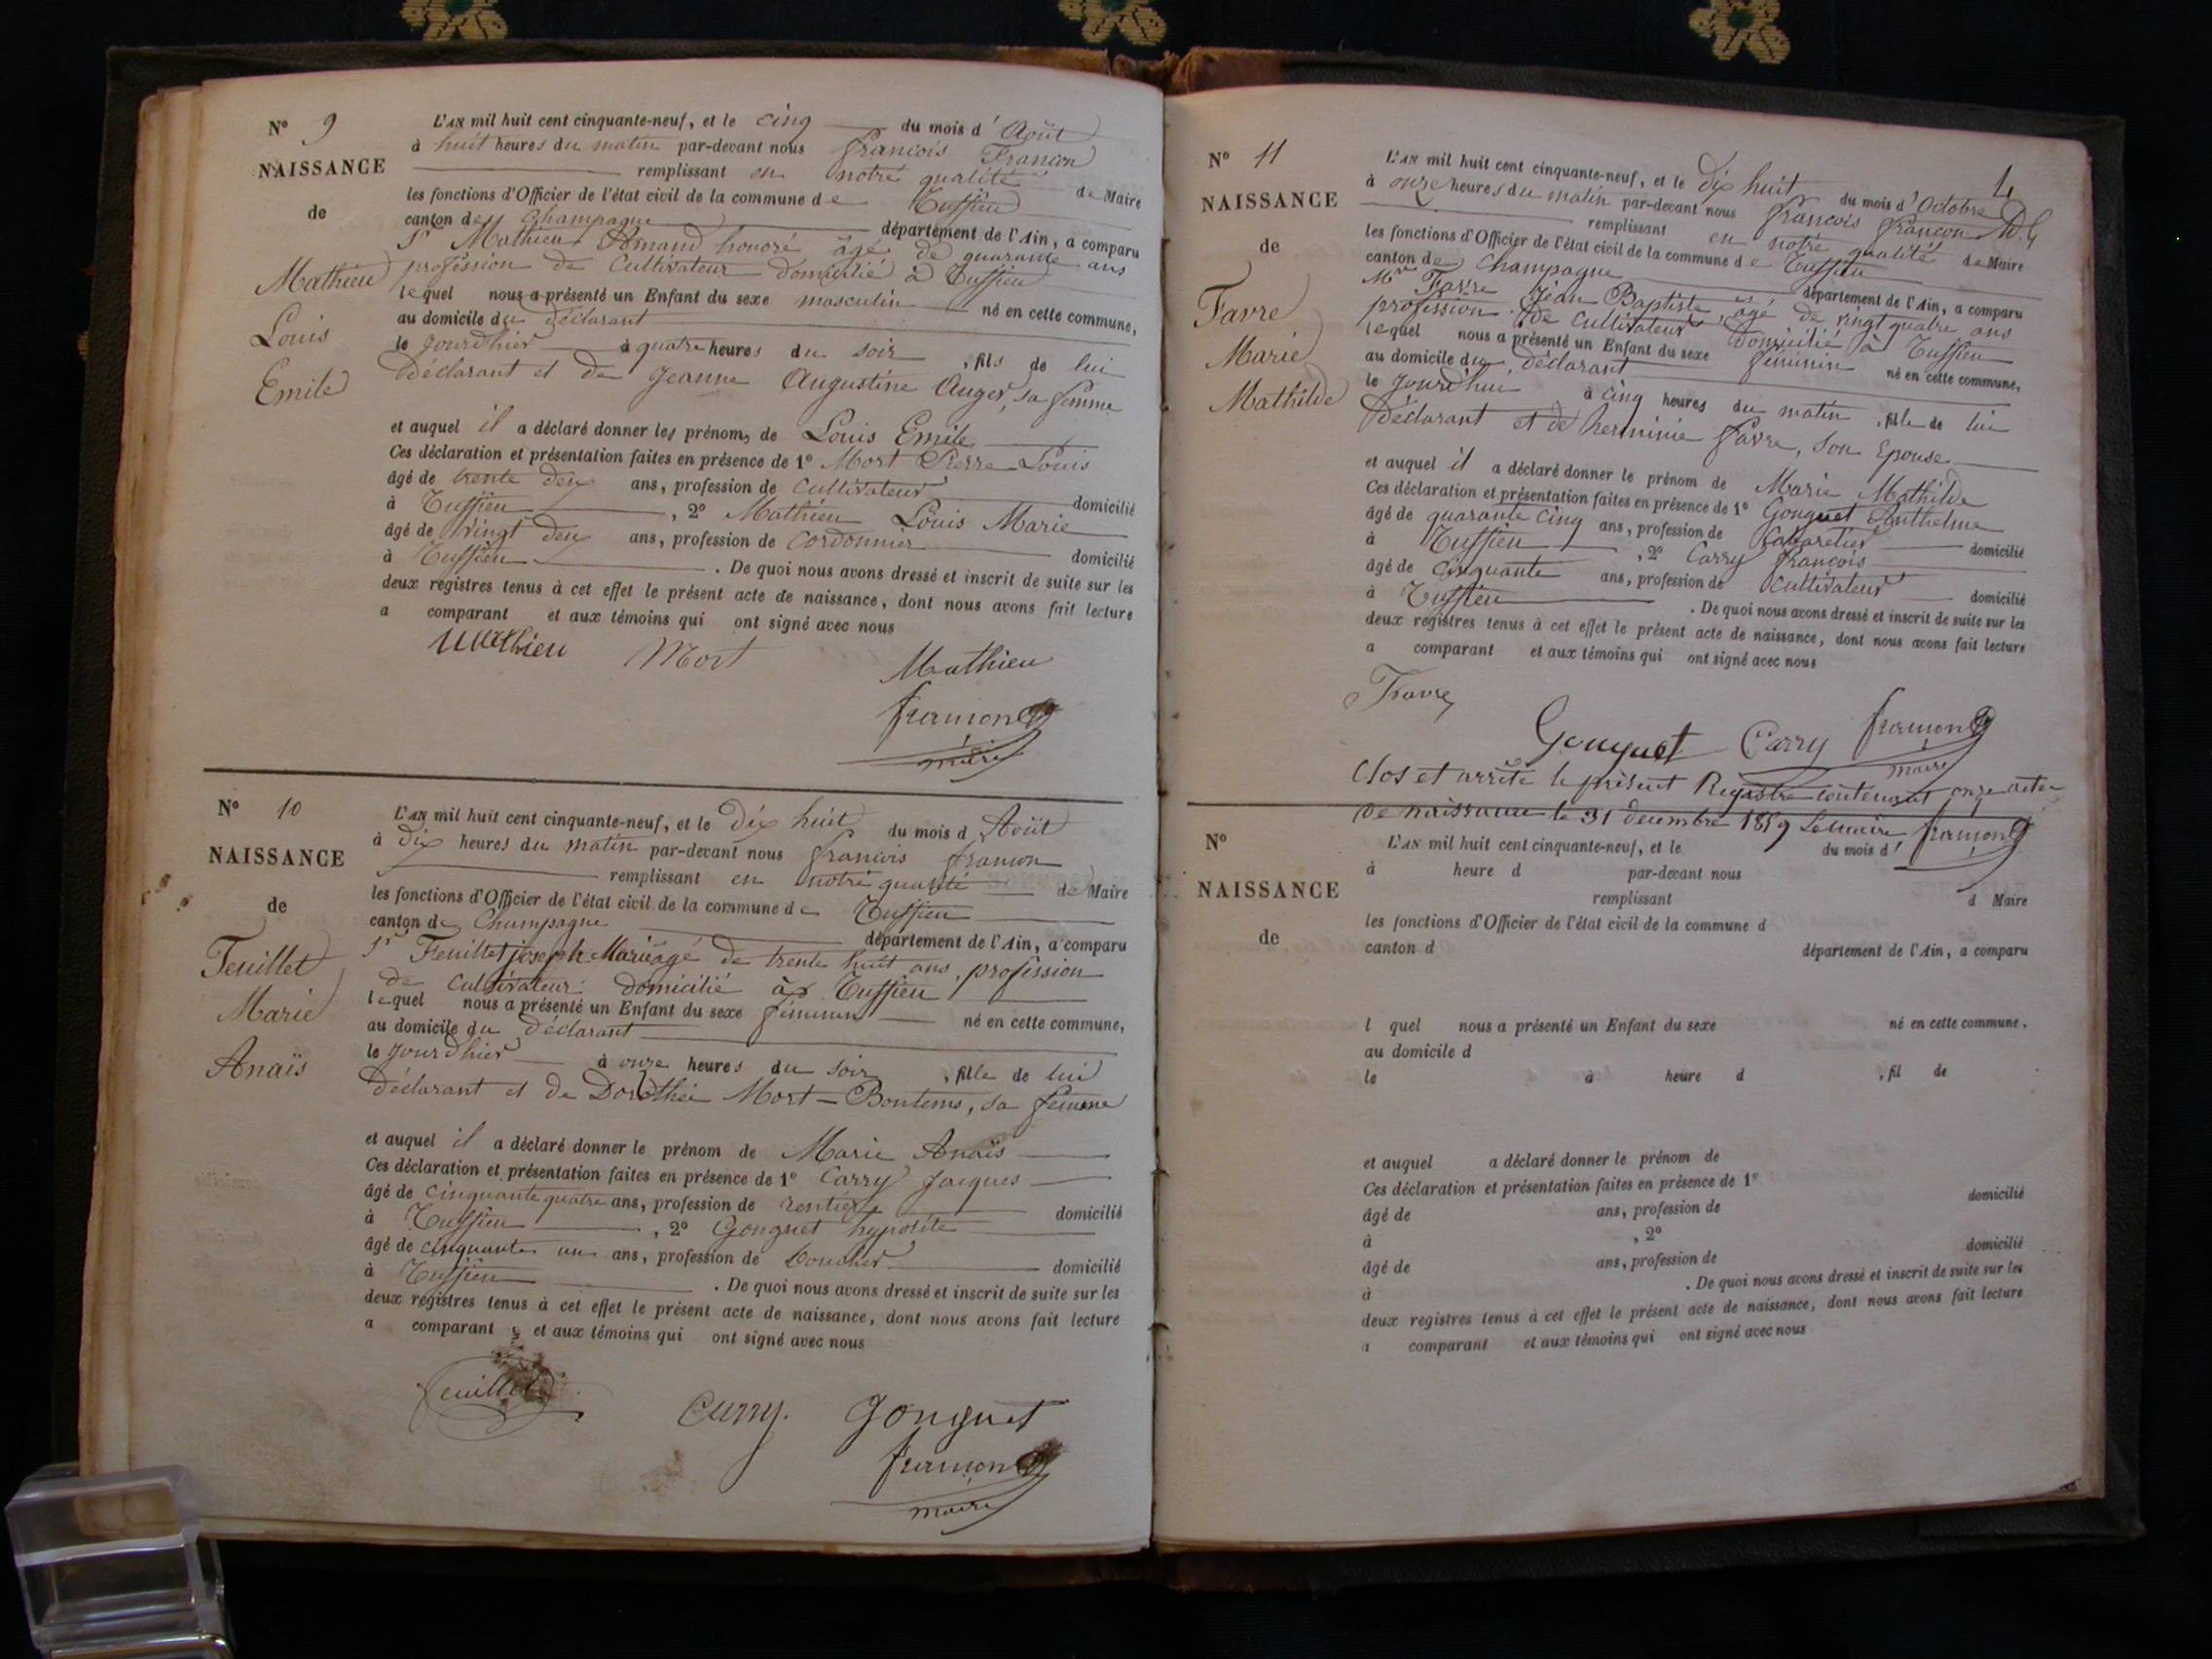 N° 9
NAISSANCE
de
Mathieu
Louis
Emile
L'AN mil huit cent cinquante-neuf, et le cinq du mois d'Août
à huit heures du matin par-devant nous françois Francon
remplissant en notre qualité de Maire
les fonctions d'Officier de l'état civil de la commune de
canton de Champagne département de l'Ain, a comparu
Sr Mathieu Amand honoré âgé de quarante ans
profession de Cultivateur domicilié à
lequel nous a présenté un Enfant du sexe masculin né en cette commune,
au domicile du déclarant
le jourdhier à quatre heures du soir, fils de lui
déclarant et de Jeanne Augustine Auger, sa femme
et auquel il a déclaré donner les prénoms de Louis Emile
Ces déclaration et présentation faites en présence de 1° Mort Pierre Louis
âgé de trente deux ans, profession de Cultivateur domicilié
à , 2° Mathieu Louis Marie
âgé de vingt deux ans, profession de Cordonnier domicilié
à . De quoi nous avons dressé et inscrit de suite sur les
deux registres tenus à cet effet le présent acte de naissance, dont nous avons fait lecture
a comparant et aux témoins qui ont signé avec nous
Mathieu Mort Mathieu
francon
maire
N° 10
NAISSANCE
de
Feuillet
Marie
Anaïs
L'AN mil huit cent cinquante-neuf, et le dix huit du mois d Août
à dix heures du matin par-devant nous françois francon
remplissant en notre qualité de Maire
les fonctions d'Officier de l'état civil de la commune de
canton de Champagne département de l'Ain, a comparu
Sr Feuillet joseph Marie âgé de trente huit ans, profession
de Cultivateur domicilié à
lequel nous a présenté un Enfant du sexe féminin né en cette commune,
au domicile du déclarant
le jourdhier à onze heures du soir, fille de lui
déclarant et de Dorothée Mort-Bontems, sa femme
et auquel il a déclaré donner le prénom de Marie Anaïs
Ces déclaration et présentation faites en présence de 1° Carry Jacques
âgé de cinquante quatre ans, profession de rentier domicilié
à , 2° Gonguet hypolite
âgé de cinquante un ans, profession de boucher domicilié
à . De quoi nous avons dressé et inscrit de suite sur les
deux registres tenus à cet effet le présent acte de naissance, dont nous avons fait lecture
a comparant et aux témoins qui ont signé avec nous
feuillet Carry. Gonguet
francon
maire
4
N° 11
NAISSANCE
de
Favre
Marie
Mathilde
L'AN mil huit cent cinquante-neuf, et le dix huit du mois d'Octobre
à onze heures du matin par-devant nous françois francon
remplissant en notre qualité de Maire
les fonctions d'Officier de l'état civil de la commune de
canton de Champagne département de l'Ain, a comparu
Mr Favre Jean Baptiste, âgé de vingt quatre ans
profession de Cultivateur domicilié à
lequel nous a présenté un Enfant du sexe féminin né en cette commune,
au domicile du déclarant
le jourdhui à cinq heures du matin, fille de lui
déclarant et de herminie favre, son Epouse
et auquel il a déclaré donner le prénom de Marie Mathilde
Ces déclaration et présentation faites en présence de 1° Gonguet Anthelme
âgé de quarante cinq ans, profession de Cabaretier domicilié
à , 2° Carry françois
âgé de Cinquante ans, profession de Cultivateur domicilié
à . De quoi nous avons dressé et inscrit de suite sur les
deux registres tenus à cet effet le présent acte de naissance, dont nous avons fait lecture
a comparant et aux témoins qui ont signé avec nous
Favre
Gonguet Carry francon
maire
Clos et arrêté le présent Registre contenant onze actes
de naissance le 31 decembre 1859 Le maire francon
N°
NAISSANCE
de
L'AN mil huit cent cinquante-neuf, et le du mois d
à heure d par-devant nous
remplissant d Maire
les fonctions d'Officier de l'état civil de la commune d
canton d département de l'Ain, a comparu
l quel nous a présenté un Enfant du sexe né en cette commune.
au domicile d
le à heure d , fil de
et auquel a déclaré donner le prénom de
Ces déclaration et présentation faites en présence de 1°
âgé de ans, profession de domicilié
à , 2°
âgé de ans, profession de domicilié
à . De quoi nous avons dressé et inscrit de suite sur les
deux registres tenus à cet effet le présent acte de naissance, dont nous avons fait lecture
a comparant et aux témoins qui ont signé avec nous